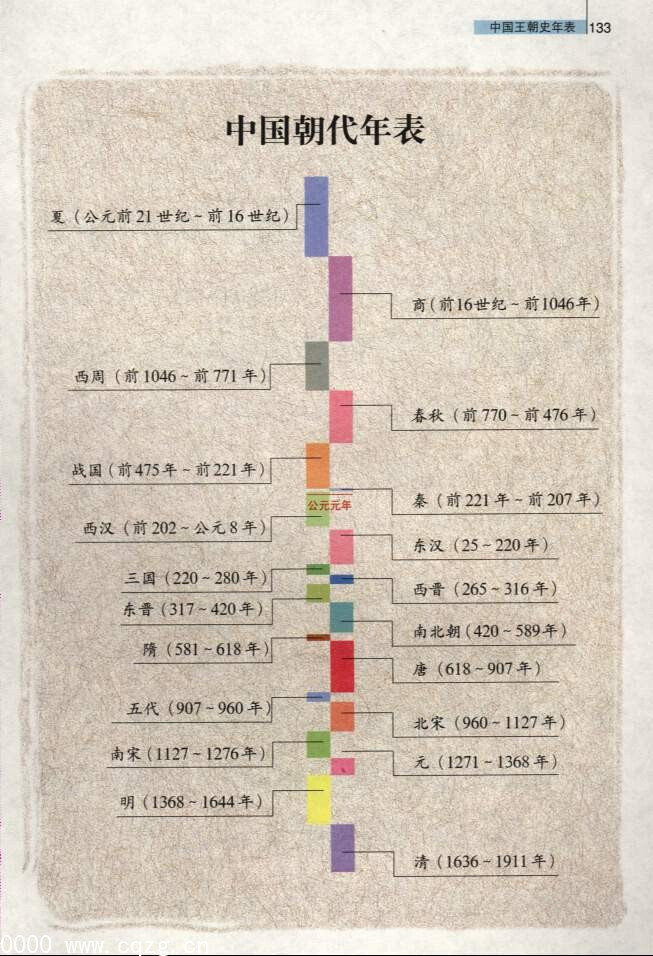 中国王朝史年表 133
中国朝代年表
夏（公元前21世纪～前16世纪）
商（前16世纪～前1046年）
西周（前1046～前771年）
春秋（前770～前476年）
战国（前475年～前221年）
秦（前221年～前207年）
公元元年
西汉（前202～公元8年）
东汉（25～220年）
三国（220～280年）
西晋（265～316年）
东晋（317～420年）
南北朝（420～589年）
隋（581～618年）
唐（618～907年）
五代（907～960年）
北宋（960～1127年）
南宋（1127～1276年）
元（1271～1368年）
明（1368～1644年）
清（1636～1911年）
0000 www.cqzg.cn